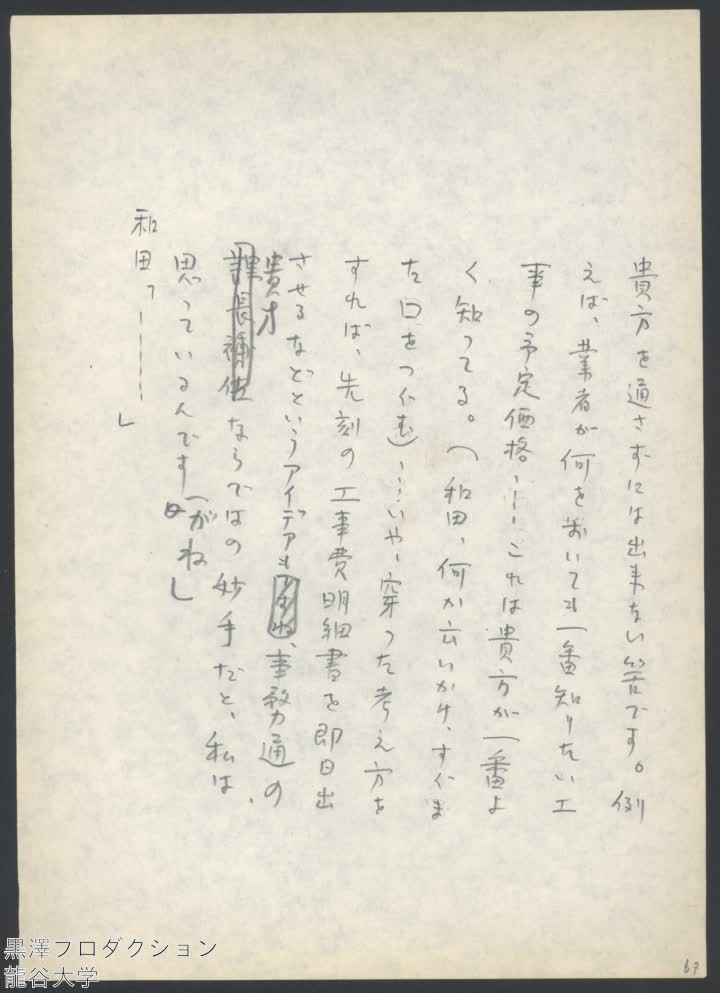 貴方を通さずには出来ない筈です。例
えば、業者が何をおいても一番知りたい工
事の予定価格……これは貴方が一番よ
く知ってる。(和田、何か云いかけ、すぐま
た口をつぐむ)……いや、穿った考え方を
すれば、先刻の工事費明細書を即日出
させるなどというアイデアも、事務通の
貴方
課長補佐ならではの妙手だと、私は、
思っているんですがね」
和田「――――」
67
黒澤プロダクション
龍谷大学